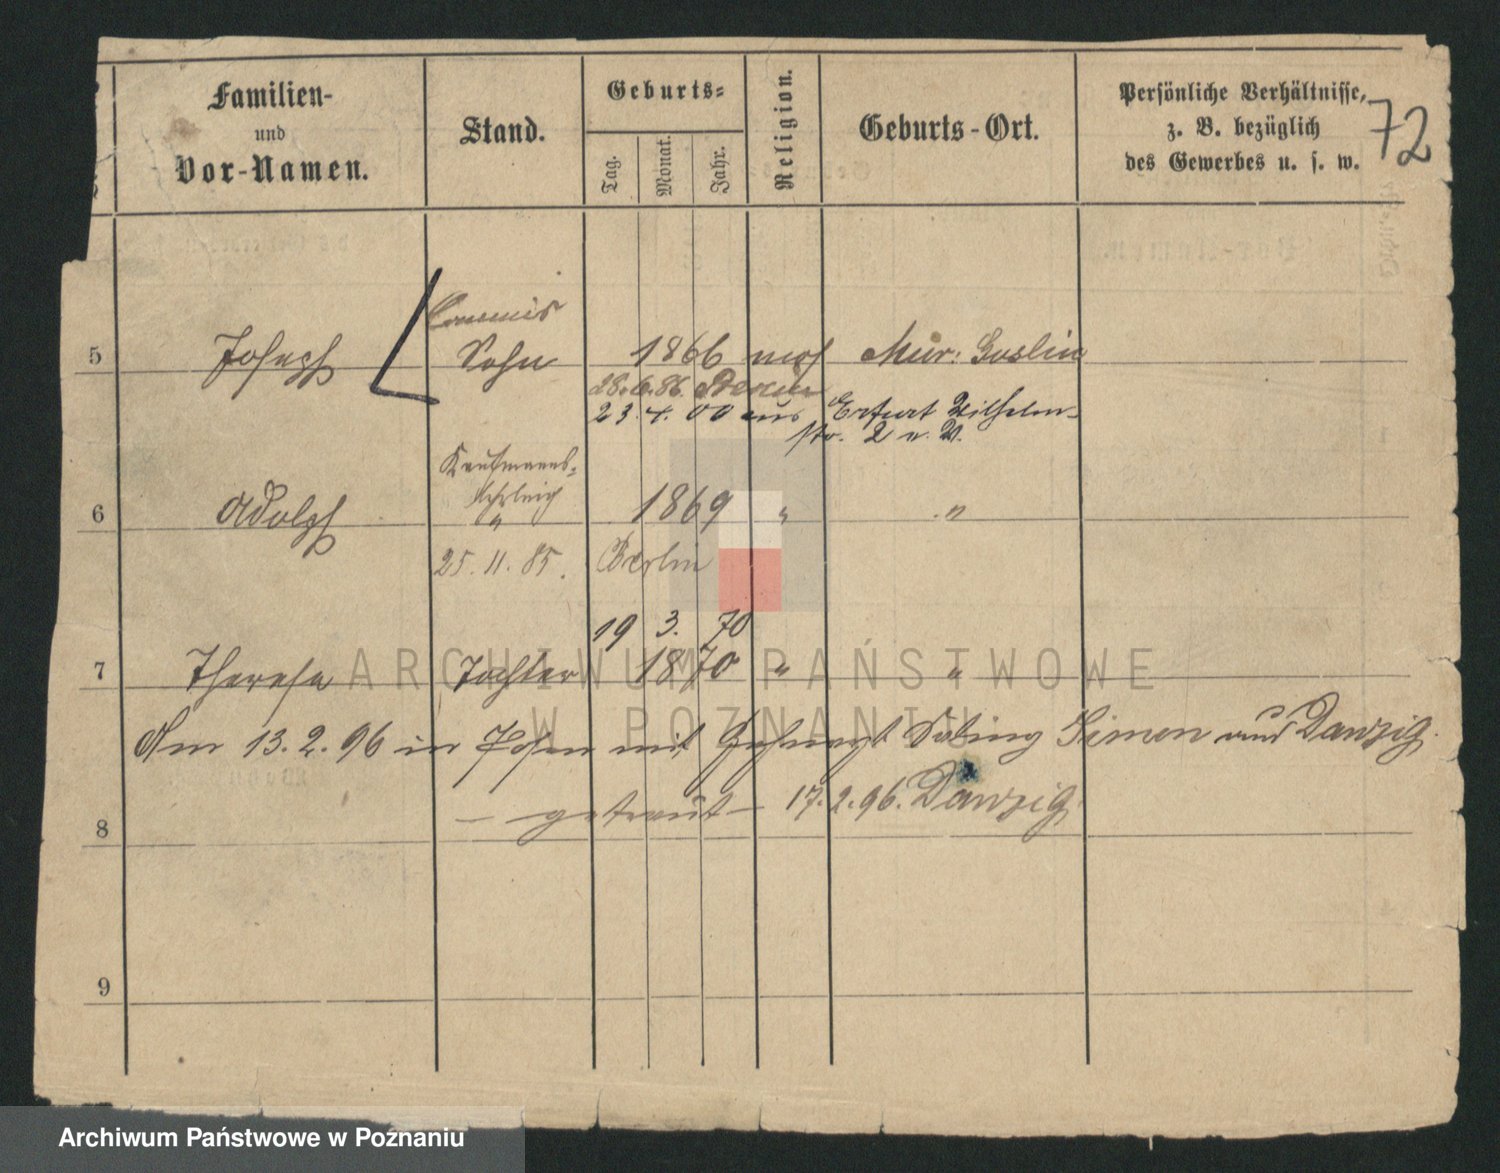 Familien-
und
Vor-Namen.
Stand.
Geburts-
Tag.
Monat.
Jahr.
Religion.
Geburts-Ort.
Persönliche Verhältnisse,
z. B. bezüglich
des Gewerbes u. s. w.
72
Commis
5 Joseph Sohn 1866 mos Mur: Goslin
28. 6. 86.
23. 4. 00 aus Erfurt Wilhelm-
str. 2 n. W.
Kaufmanns-
6 Adolph " 1869 " "
25. 11. 85. Berlin
19 3. 70
7 Therese Tochter 1870 " "
Am 13. 2. 96 in Posen mit Simon aus Danzig.
— getraut — 17. 2. 96. Danzig.
8
9
ARCHIWUM PAŃSTWOWE
W POZNANIU
Archiwum Państwowe w Poznaniu